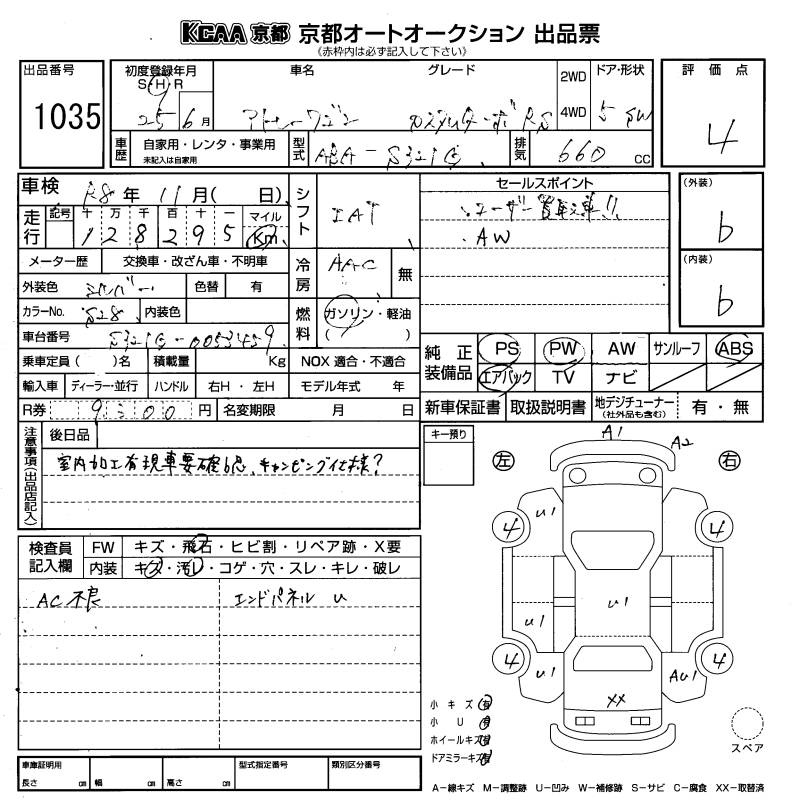 KCAA 京都 京都オートオークション 出品票
(赤枠内は必ず記入して下さい)
出品番号 初度登録年月 車名 グレード 2WD ドア・形状 評価点
S H R
1035 25 6月 アトレーワゴン カスタムターボRS 4WD 5 SW 4
車歴 自家用・レンタ・事業用 型式 ABA-S321G 排気 660 CC
未記入は自家用
車検 R8年 11月( 日) シフト IAT セールスポイント (外装)
・ユーザー買取車!! b
走行 記号 十 万 千 百 十 一 マイル
1 2 8 2 9 5 Km ・AW
メーター歴 交換車・改ざん車・不明車 冷房 AAC 無 (内装)
外装色 シルバー 色替 有 b
カラーNo. S28 内装色 燃料 ガソリン・軽油
( )
車台番号 S321G-0053459
乗車定員( )名 積載量 Kg NOX 適合・不適合 純正装備品 PS PW AW サンルーフ ABS
輸入車 ディーラー・並行 ハンドル 右H・左H モデル年式 年 エアバック TV ナビ
R券 9300円 名変期限 月 日 新車保証書 取扱説明書 地デジチューナー(社外品も含む) 有・無
注意事項(出品店記入) 後日品 キー預り
室内加工有現車要確認、キャンピング仕様?
A1 A2
左 右
U1
4 4
検査員記入欄 FW キズ・飛石・ヒビ割・リペア跡・X要
内装 キズ・汚レ・コゲ・穴・スレ・キレ・破レ
AC不良 エンドパネル U
U1
U1
4 4
U1 AU1
XX
小キズ 有
小U 有
ホイールキズ 有
ドアミラーキズ 有
スペア
車庫証明用 型式指定番号 類別区分番号
長さ cm 幅 cm 高さ cm
A-線キズ M-調整跡 U-凹み W-補修跡 S-サビ C-腐食 XX-取替済